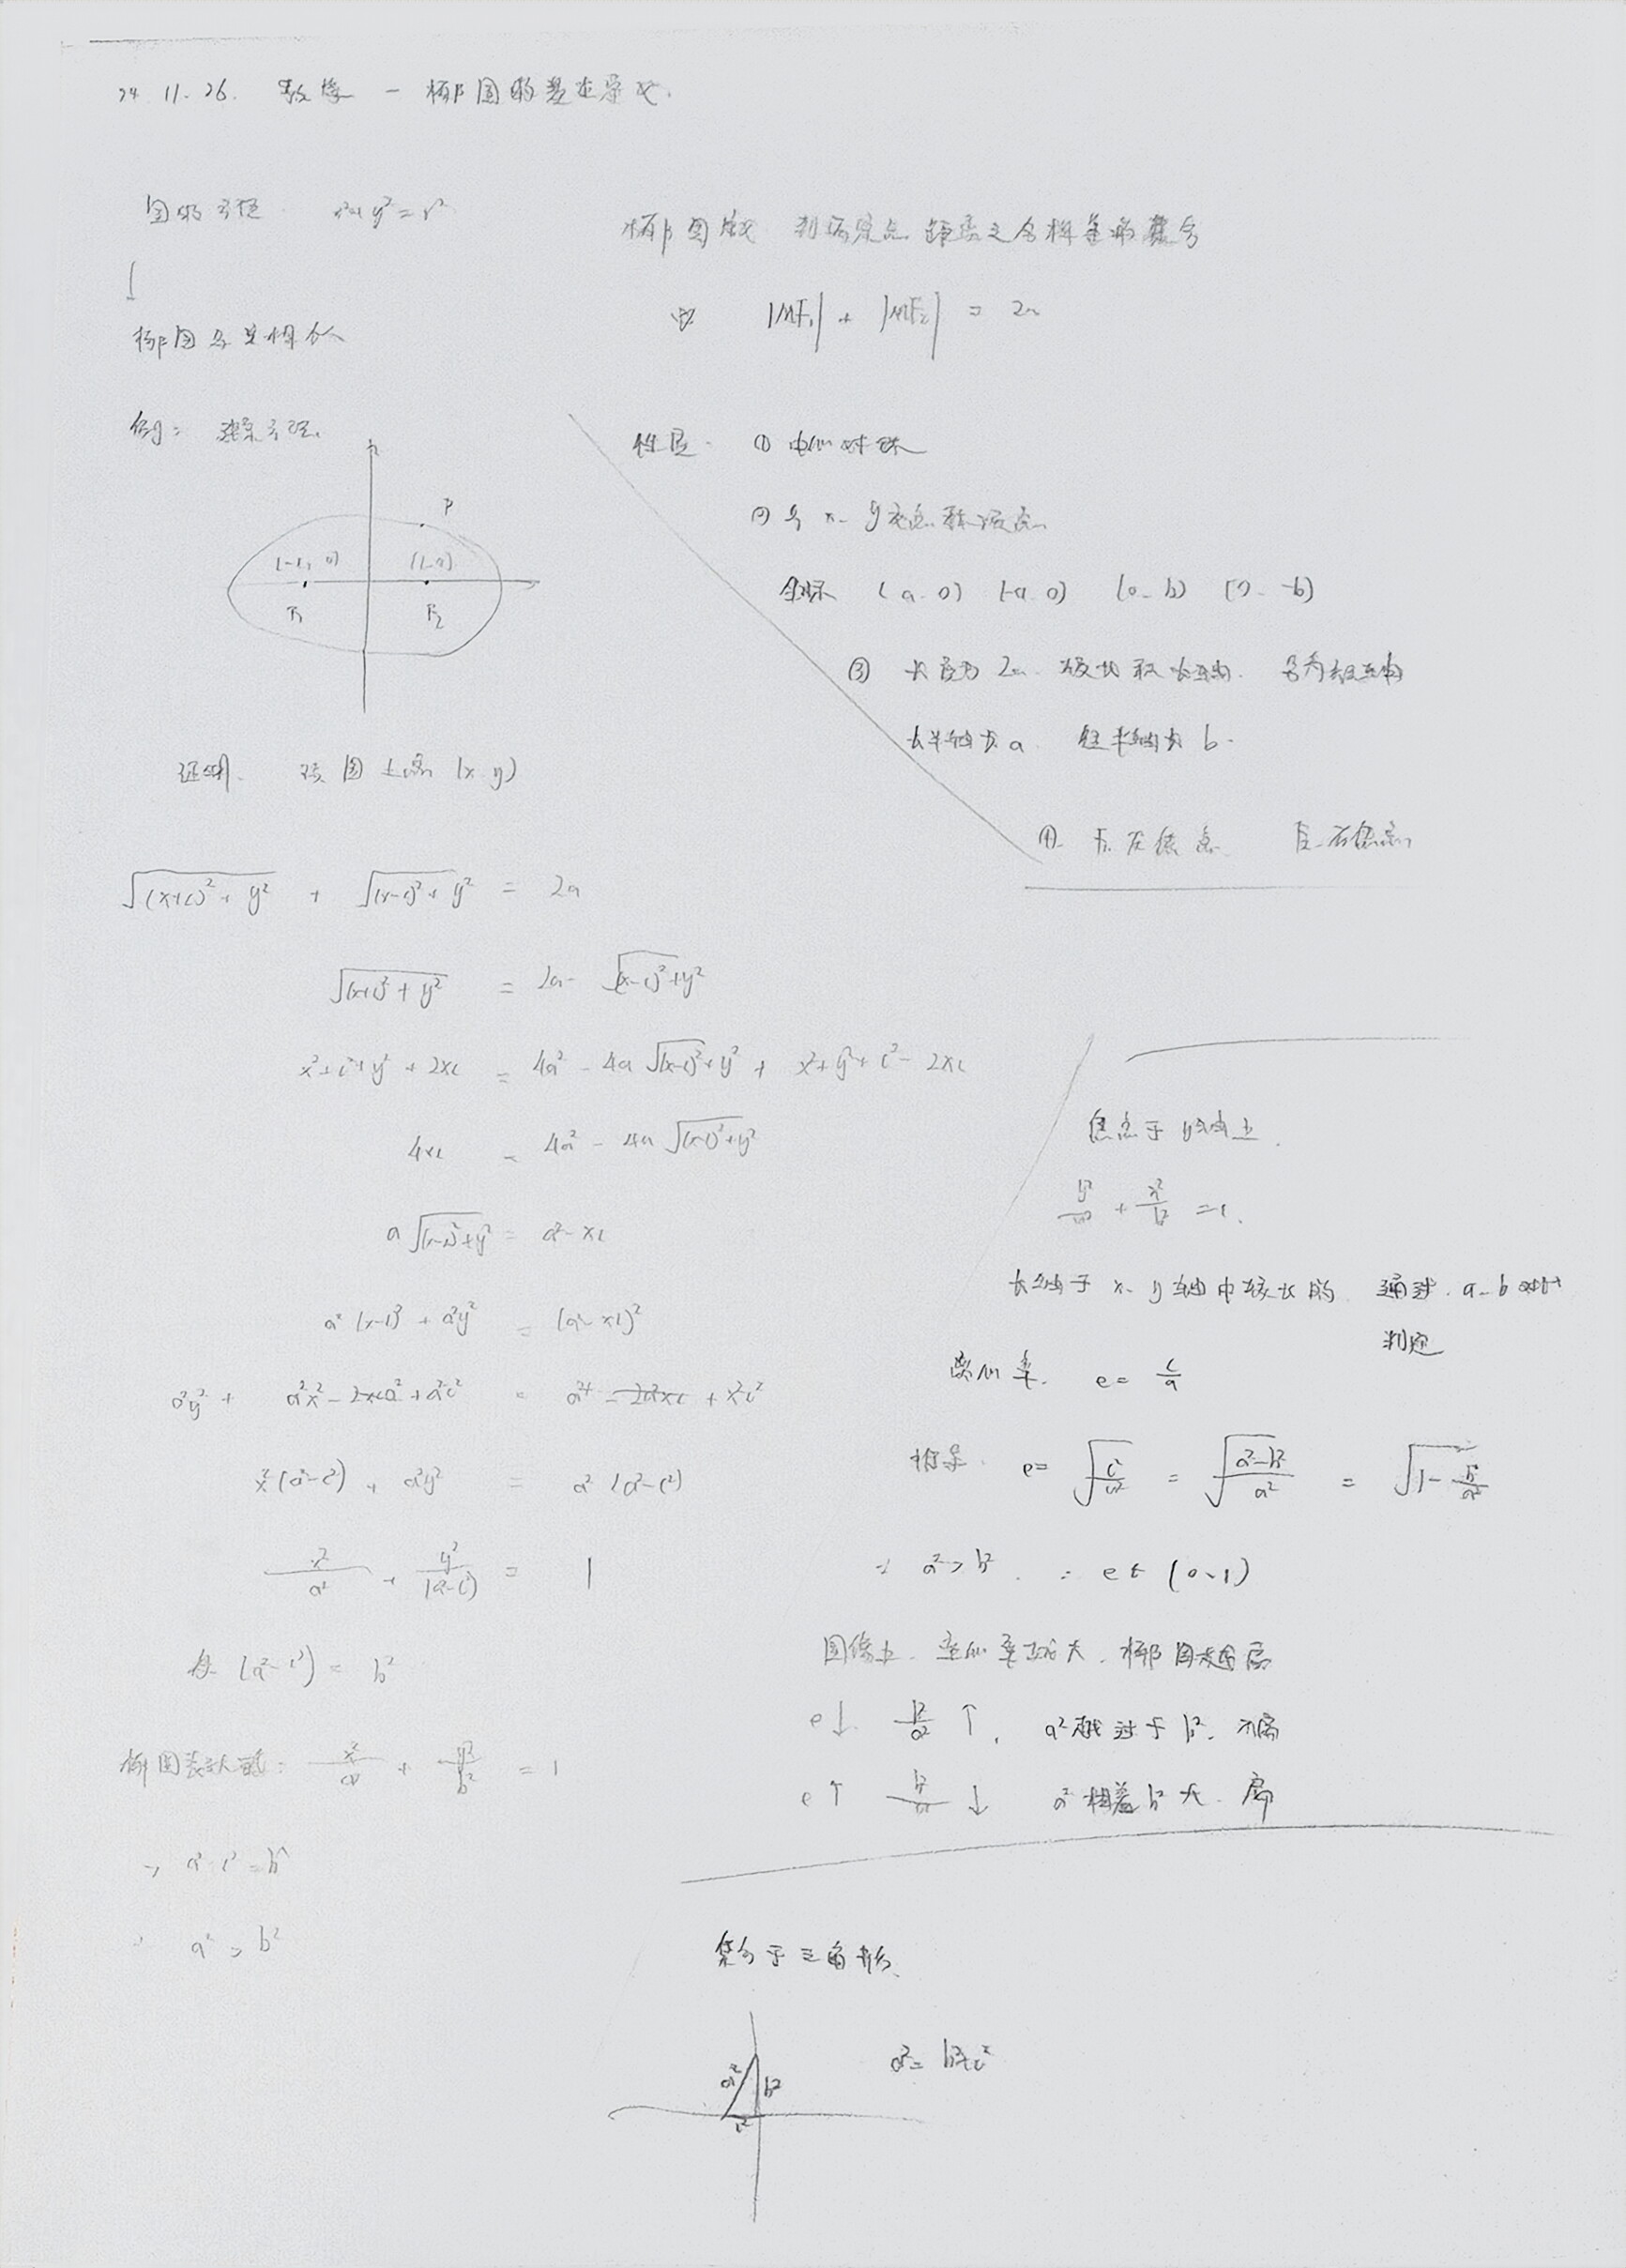 24.11.26. 数学 - 椭圆的基本定义.
圆的方程 x²+y²=r²
椭圆与其相似
例: 建系方程.
P
(-c, 0) (c, 0)
F₁ F₂
证明. 设圆上点 (x y)
√((x+c)²+y²) + √((x-c)²+y²) = 2a
√((x+c)²+y²) = 2a - √((x-c)²+y²)
x²+c²+y²+2xc = 4a² - 4a√((x-c)²+y²) + x²+y²+c²-2xc
4xc = 4a² - 4a√((x-c)²+y²)
a√((x-c)²+y²) = a²-xc
a²(x-c)² + a²y² = (a²-xc)²
a²y² + a²x² - 2xca² + a²c² = a⁴ - 2a²xc + x²c²
x²(a²-c²) + a²y² = a²(a²-c²)
x²/a² + y²/(a²-c²) = 1
(a²-c²) = b²
椭圆表达式: x²/a² + y²/b² = 1
∵ a²-c²=b²
∴ a²>b²
椭圆 到两定点距离之合相等的集合
即 |MF₁| + |MF₂| = 2a
性质. ① 中心对称
② 与 x、y 交点称顶点
坐标 (a,0) (-a,0) (0,b) (0,-b)
③ 长度为 2a. 较长称长轴. 另为短轴
长半轴长 a. 短半轴长 b.
④ F₁ 左焦点 F₂ 右焦点
焦点于 y轴上.
y²/a² + x²/b² = 1.
长轴于 x、y轴中较长的 通过 a、b
判定
离心率. e = c/a
推导. e = √(c²/a²) = √((a²-b²)/a²) = √(1-b²/a²)
∵ a²>b² ∴ e∈(0,1)
图像上. 离心率越大, 椭圆越扁
e↓ b²/a² ↑, a² 越过于 b². 不扁
e↑ b²/a² ↓ a² 相差 b² 大. 扁
集合于三角形.
a² b² c²
a²=b²+c²